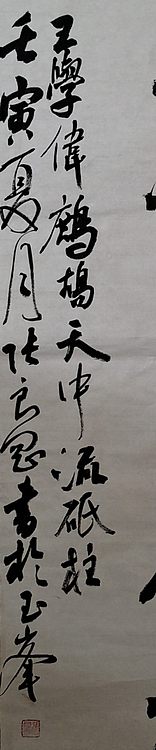 王學偉鷓鴣天中流砥柱
壬寅夏月張良富書於玉峯